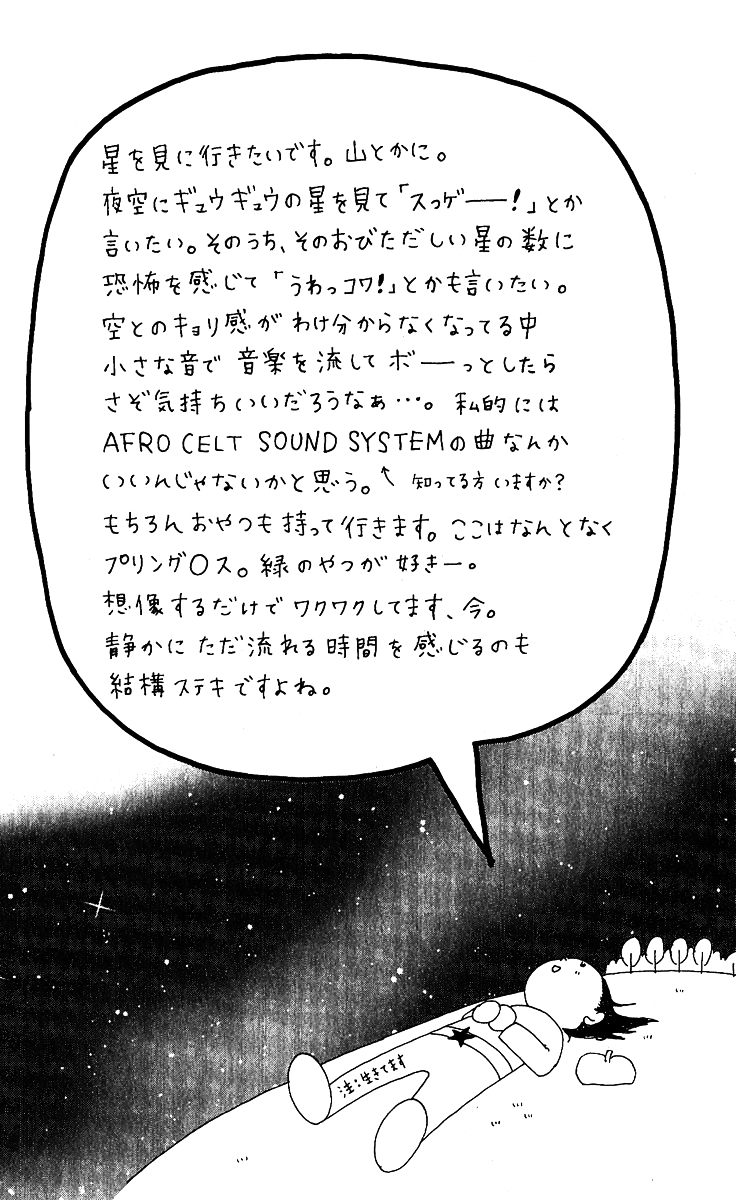 星を見に行きたいです。山とかに。
夜空にギュウギュウの星を見て「スっゲー―!」とか
言いたい。そのうち、そのおびただしい星の数に
恐怖を感じて「うわっコワ!」とかも言いたい。
空とのキョリ感がわけ分からなくなってる中
小さな音で音楽を流してボー―っとしたら
さぞ気持ちいいだろうなぁ…。私的には
AFRO CELT SOUND SYSTEMの曲なんか
いいんじゃないかと思う。↑知ってる方いますか?
もちろんおやつも持って行きます。ここはなんとなく
プリング○ス。緑のやつが好きー。
想像するだけでワクワクしてます、今。
静かにただ流れる時間を感じるのも
結構ステキですよね。
注:生きてます